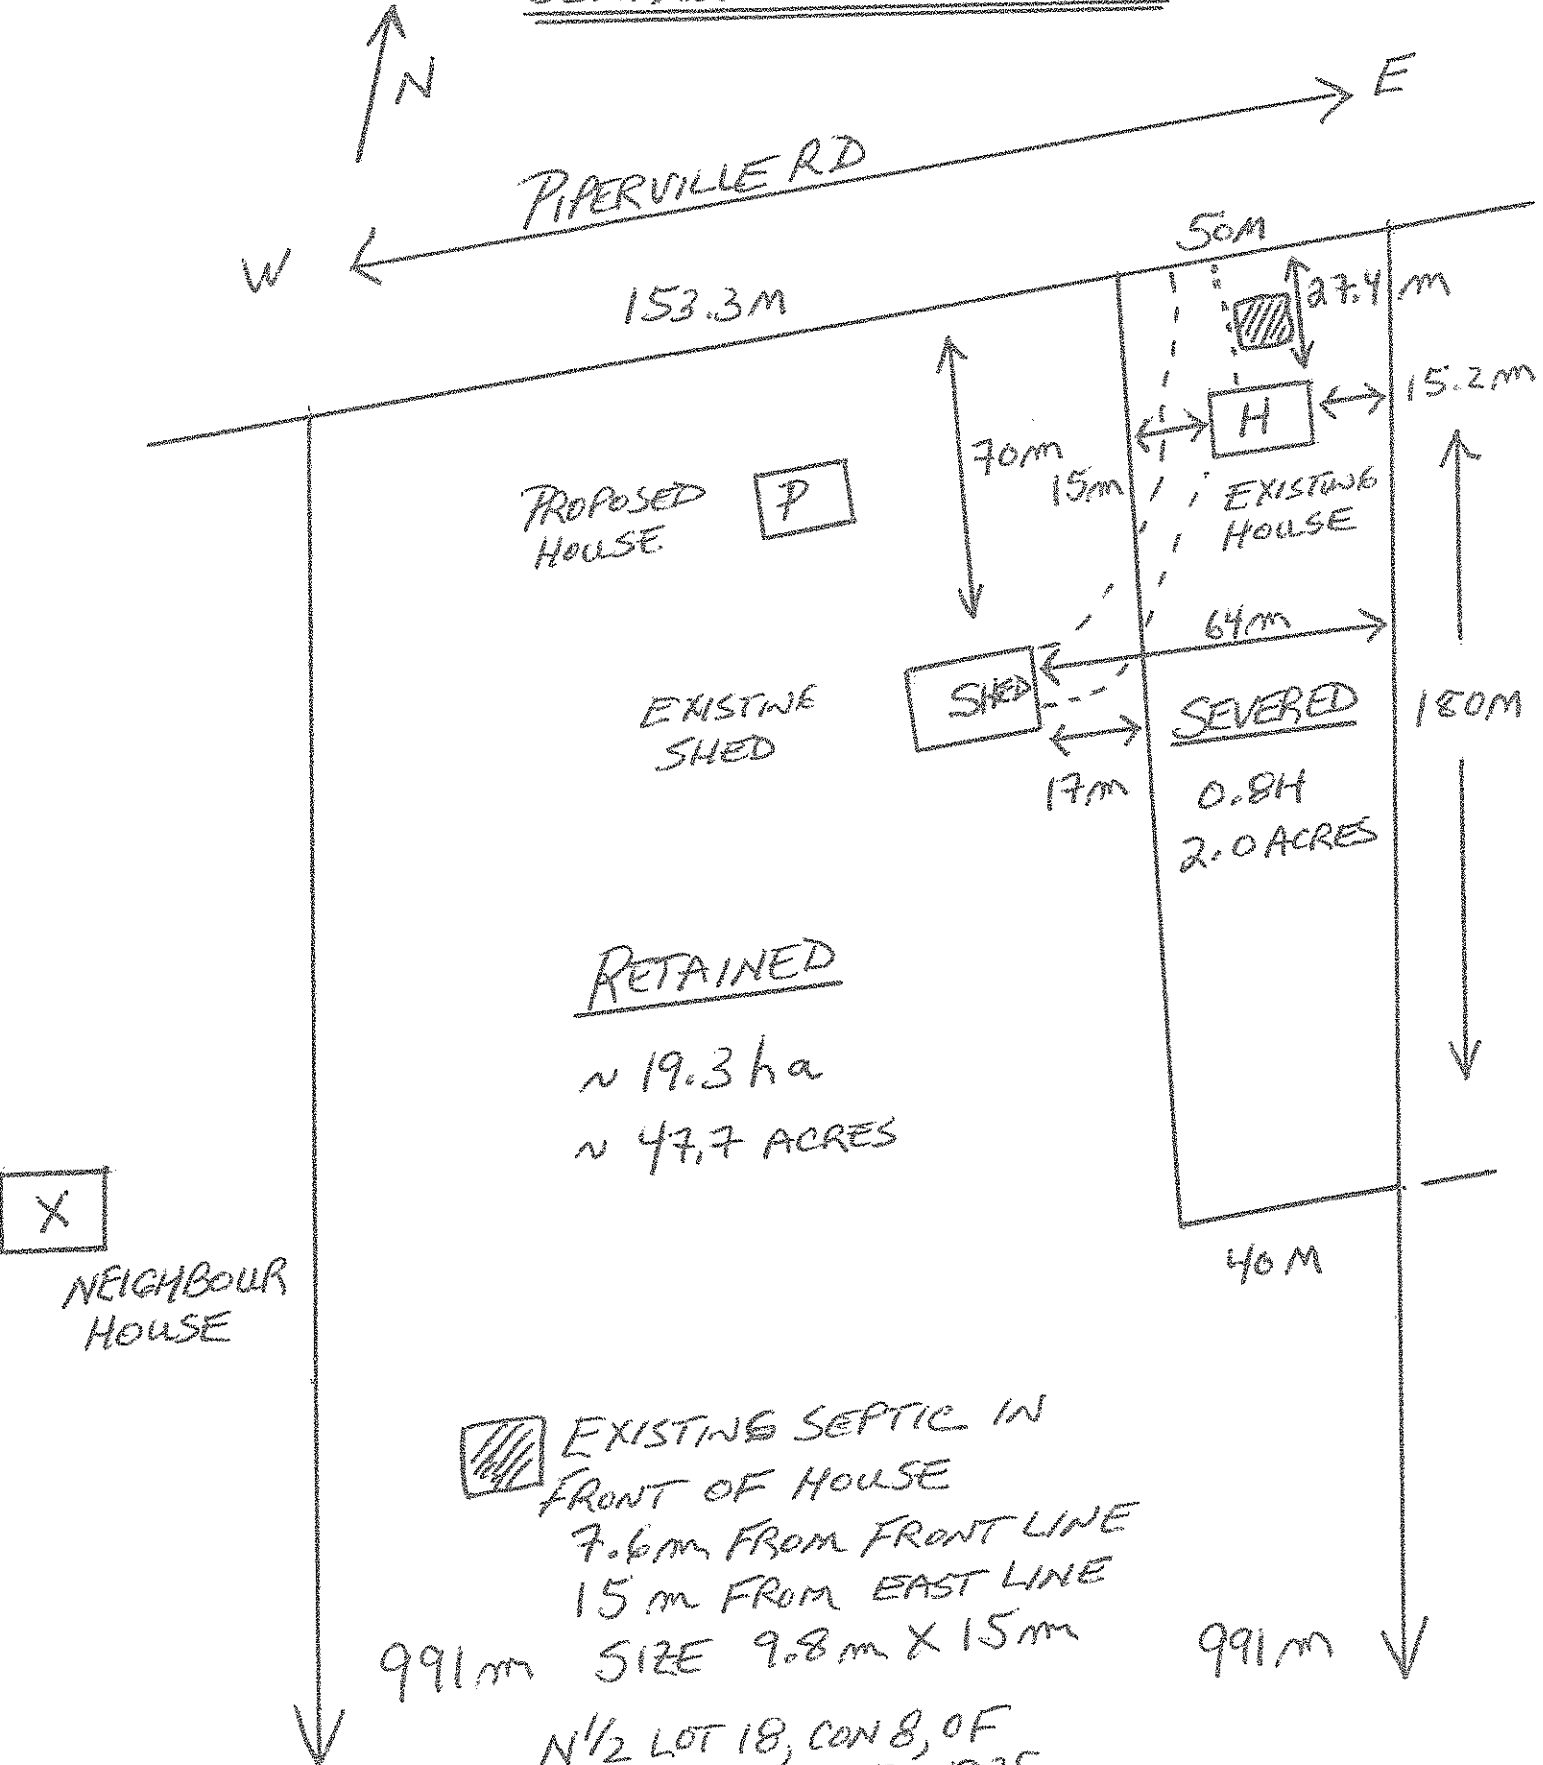 N
E
PIPERVILLE RD
W
50M
153.3M
27.4m
15.2m
H
70m
15m
PROPOSED
HOUSE
P
EXISTING
HOUSE
64m
EXISTING
SHED
SHED
SEVERED
180M
17m
0.8H
2.0 ACRES
RETAINED
~ 19.3 ha
~ 47.7 ACRES
X
NEIGHBOUR
HOUSE
40M
EXISTING SEPTIC IN
FRONT OF HOUSE
7.6m FROM FRONT LINE
15m FROM EAST LINE
SIZE 9.8m X 15m
991m
991m
N 1/2 LOT 18, CON 8, OF